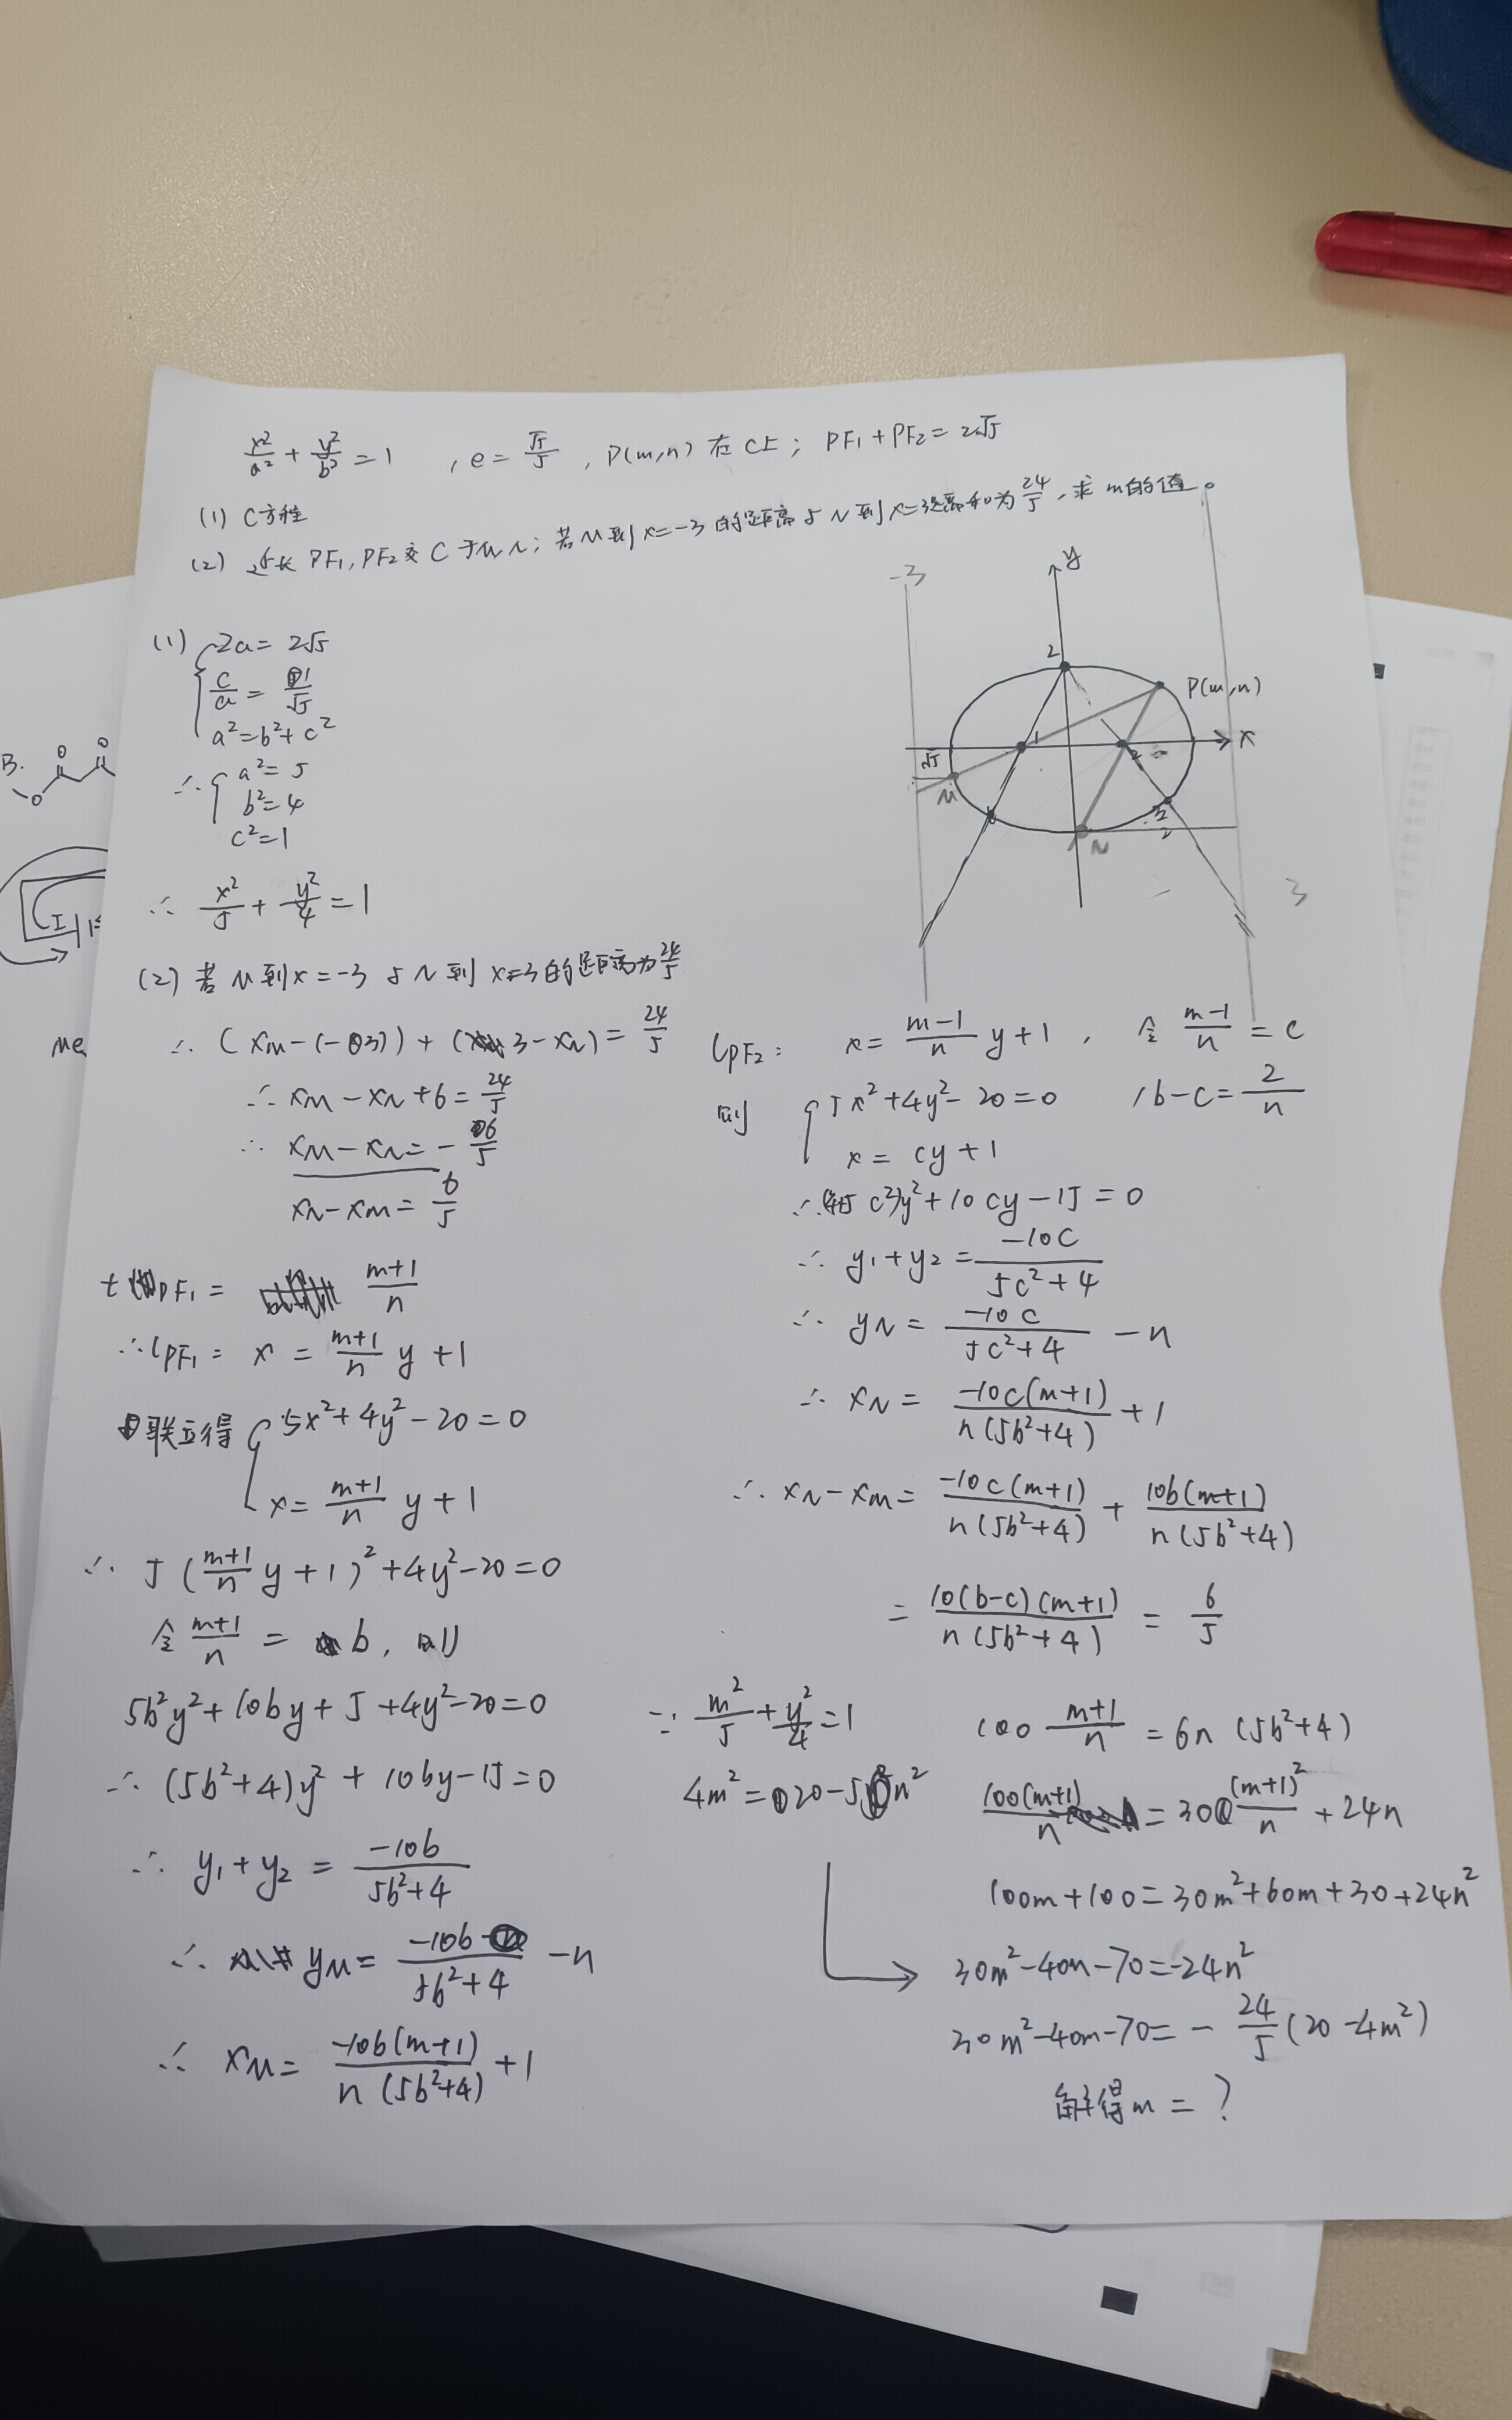 x²/a² + y²/b² = 1 , e = √5/5 , P(m,n) 在 C上 ; PF₁+PF₂ = 2√5
(1) C方程
(2) 延长 PF₁, PF₂ 交 C 于 M N ; 若 M 到 x=-3 的距离与 N 到 x=3距离和为 24/5 , 求 m 的值 。
-3
y
2
P(m,n)
1
x
√5
M
N
3
(1) 2a = 2√5
c/a = 1/√5
a² = b² + c²
∴ a² = 5
b² = 4
c² = 1
∴ x²/5 + y²/4 = 1
(2) 若 M 到 x = -3 与 N 到 x=3 的距离为 24/5
∴ (xM - (-3)) + (3 - xN) = 24/5
∴ xM - xN + 6 = 24/5
∴ xM - xN = - 6/5
xN - xM = 6/5
t PF₁ = (m+1)/n
∴ lPF₁ = x = (m+1)/n y + 1
联立得 5x² + 4y² - 20 = 0
x = (m+1)/n y + 1
∴ 5 ((m+1)/n y + 1)² + 4y² - 20 = 0
令 (m+1)/n = b , 则
5b²y² + 10by + 5 + 4y² - 20 = 0
∴ (5b²+4)y² + 10by - 15 = 0
∴ y₁ + y₂ = -10b/(5b²+4)
∴ yM = -10b/(5b²+4) - n
∴ xM = -10b(m+1)/(n(5b²+4)) + 1
lPF₂ : x = (m-1)/n y + 1 , 令 (m-1)/n = c
则 5x² + 4y² - 20 = 0
, b - c = 2/n
x = cy + 1
∴ (4+5c²)y² + 10cy - 15 = 0
∴ y₁ + y₂ = -10c/(5c²+4)
∴ yN = -10c/(5c²+4) - n
∴ xN = -10c(m+1)/(n(5b²+4)) + 1
∴ xN - xM = -10c(m+1)/(n(5b²+4)) + 10b(m+1)/(n(5b²+4))
= 10(b-c)(m+1)/(n(5b²+4)) = 6/5
∵ m²/5 + y²/4 = 1
4m² = 20 - 5n²
100 (m+1)/n = 6n (5b²+4)
100(m+1)/n = 30 (m+1)²/n + 24n
100m + 100 = 30m² + 60m + 30 + 24n²
30m² - 40m - 70 = -24n²
30m² - 40m - 70 = - 24/5 (20 - 4m²)
解得 m = ?
B.
O
O
O
I
Me